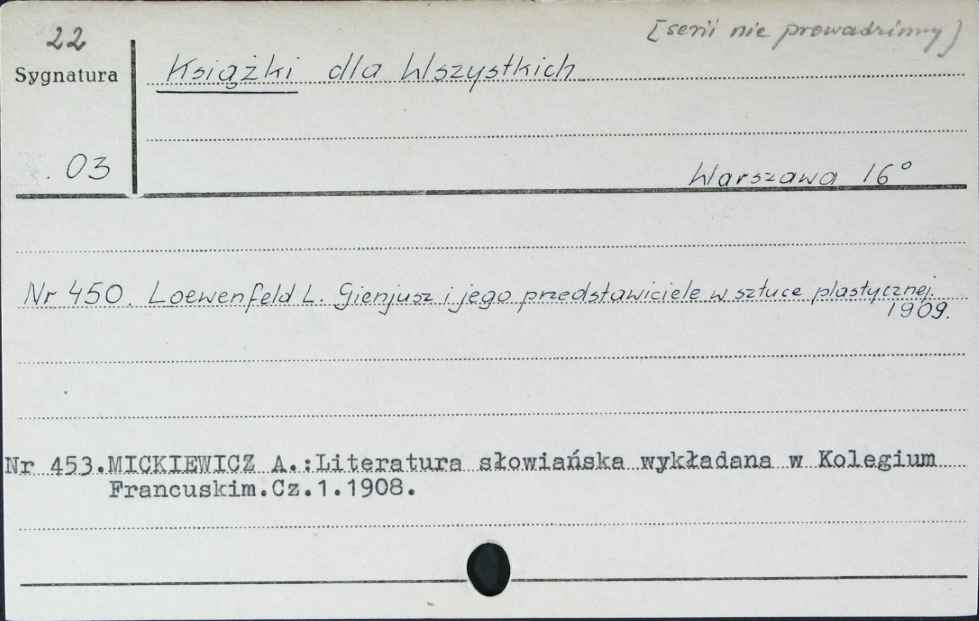 22
[serii nie prowadzimy]
Sygnatura
Książki dla Wszystkich
. 03
Warszawa 16°
Nr 450. Loewenfeld L. Gienjusz i jego przedstawiciele w sztuce plastycznej.
1909.
Nr 453. MICKIEWICZ A.: Literatura słowiańska wykładana w Kolegium
Francuskim. Cz. 1. 1908.